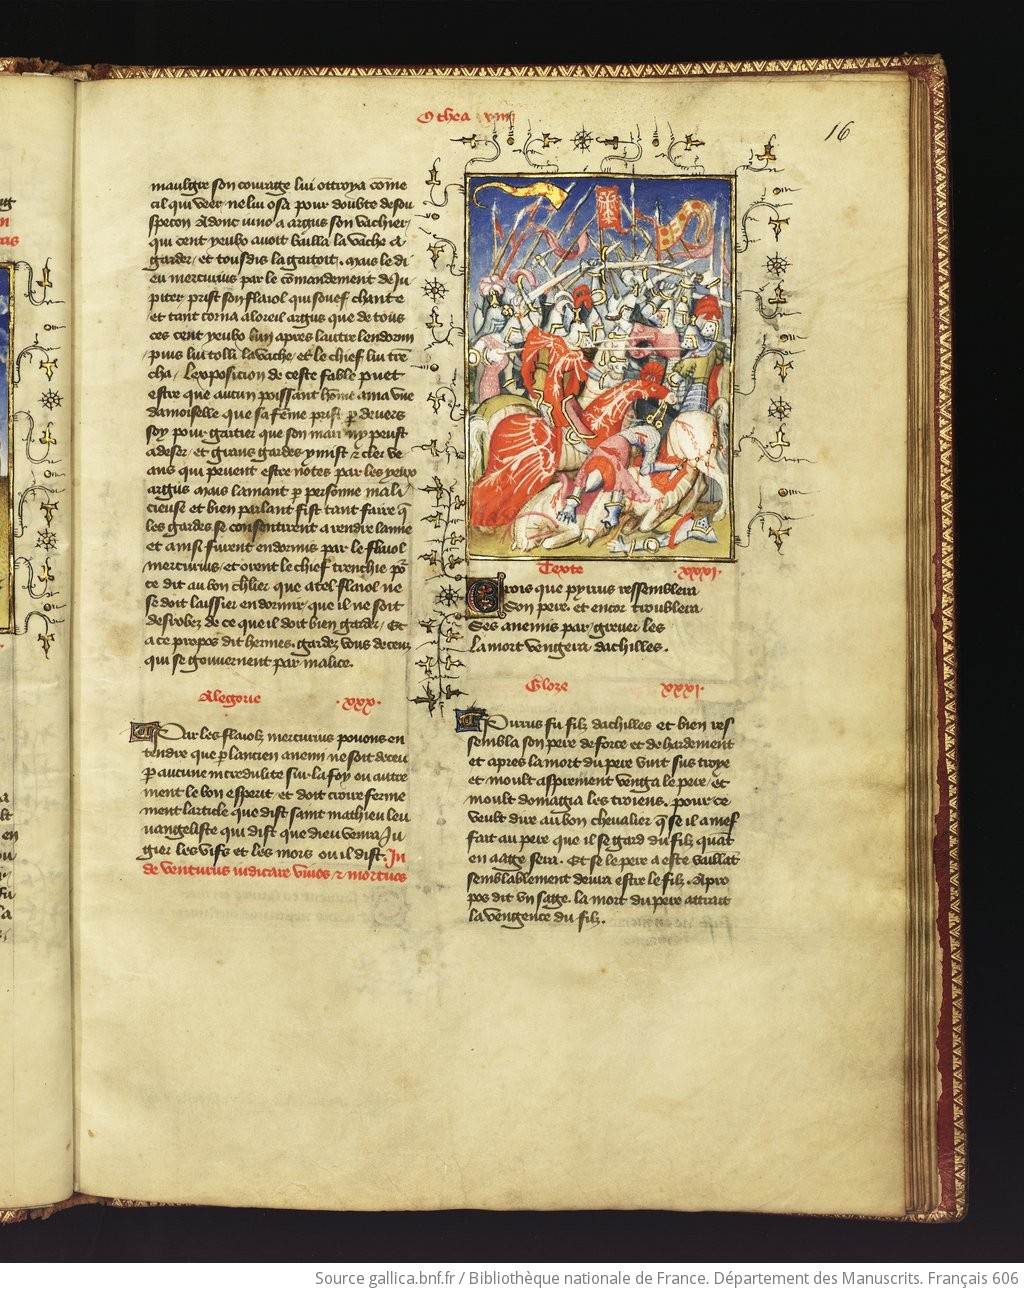 Othea xviii
16
maulgre son courage lui ottroya cõme
cil qui veer ne lui osa pour doubte de sou
speçon Adonc vino a argus son vachier
qui cent yeulx avoit bailla la vache a
garder et tousdis la gaitoit. Mais le di
eu mercurius par le cõmandement de Ju
piter prist son flaiol qui souef chante
et tant corna a loreil argus que de tous
ces cent yeulx lun apres lautre lendorm
puis lui tolli la vache et le chief lui trẽ
cha / Lexposicion de ceste fable puet
estre que aucun poissant hõme ama vne
damoiselle que sa fẽme prist p devers
soy pour gaitier que son mari ny peust
adeser et grans gardes y mist et cler ve
ans qui peuent estre notes par les yeux
argus Mais lamant p persõnne mali
cieuse et bien parlant fist tant faire q̃
les gardes se consentirent a rendre lamie
et ainsi furent endormis par le flaiol
mercurius et orent le chief trenchie po
ce dit au bon chlier que a tel flaiol ne
se doit laissier endormir que il ne soit
desrobez de ce que il doit bien garder / Et
a ce propos dit hermes. gardez vous de ceux
qui se gouvernent par malice.
Alegorie .xxx.
Par les flaiolz mercurius povons en
tendre que p lancien anemi ne soit deceu
p aucune incredulite sur la foy ou autre
ment le bon esperit et doit croire ferme
ment larticle que dist saint mathieu leu
uangeliste qui dist que dieu venra Ju
gier les vifs et les mors ou il dist. In
de venturus iudicare vivos et mortuos
Texte .xxxi.
Crois que pyrus ressemblera
Son pere et encor troublera
Ses anemis par grever les
La mort vengera dachilles.
Gloze xxxi.
Pirrus fu filz dachilles et bien res
sembla son pere de force et de hardement
et apres la mort du pere vint sus troye
et moult asprement venga le pere et
moult domagia les troiens. pour ce
veult dire au bon chevalier q̃ se il a mef
fait au pere que il se gard du filz quãt
en aage sera. Et se le pere a este vaillãt
semblablement devra estre le filz. A pro
pos dit vn sage. la mort du pere attrait
la vengence du filz.
Source gallica.bnf.fr / Bibliothèque nationale de France. Département des Manuscrits. Français 606